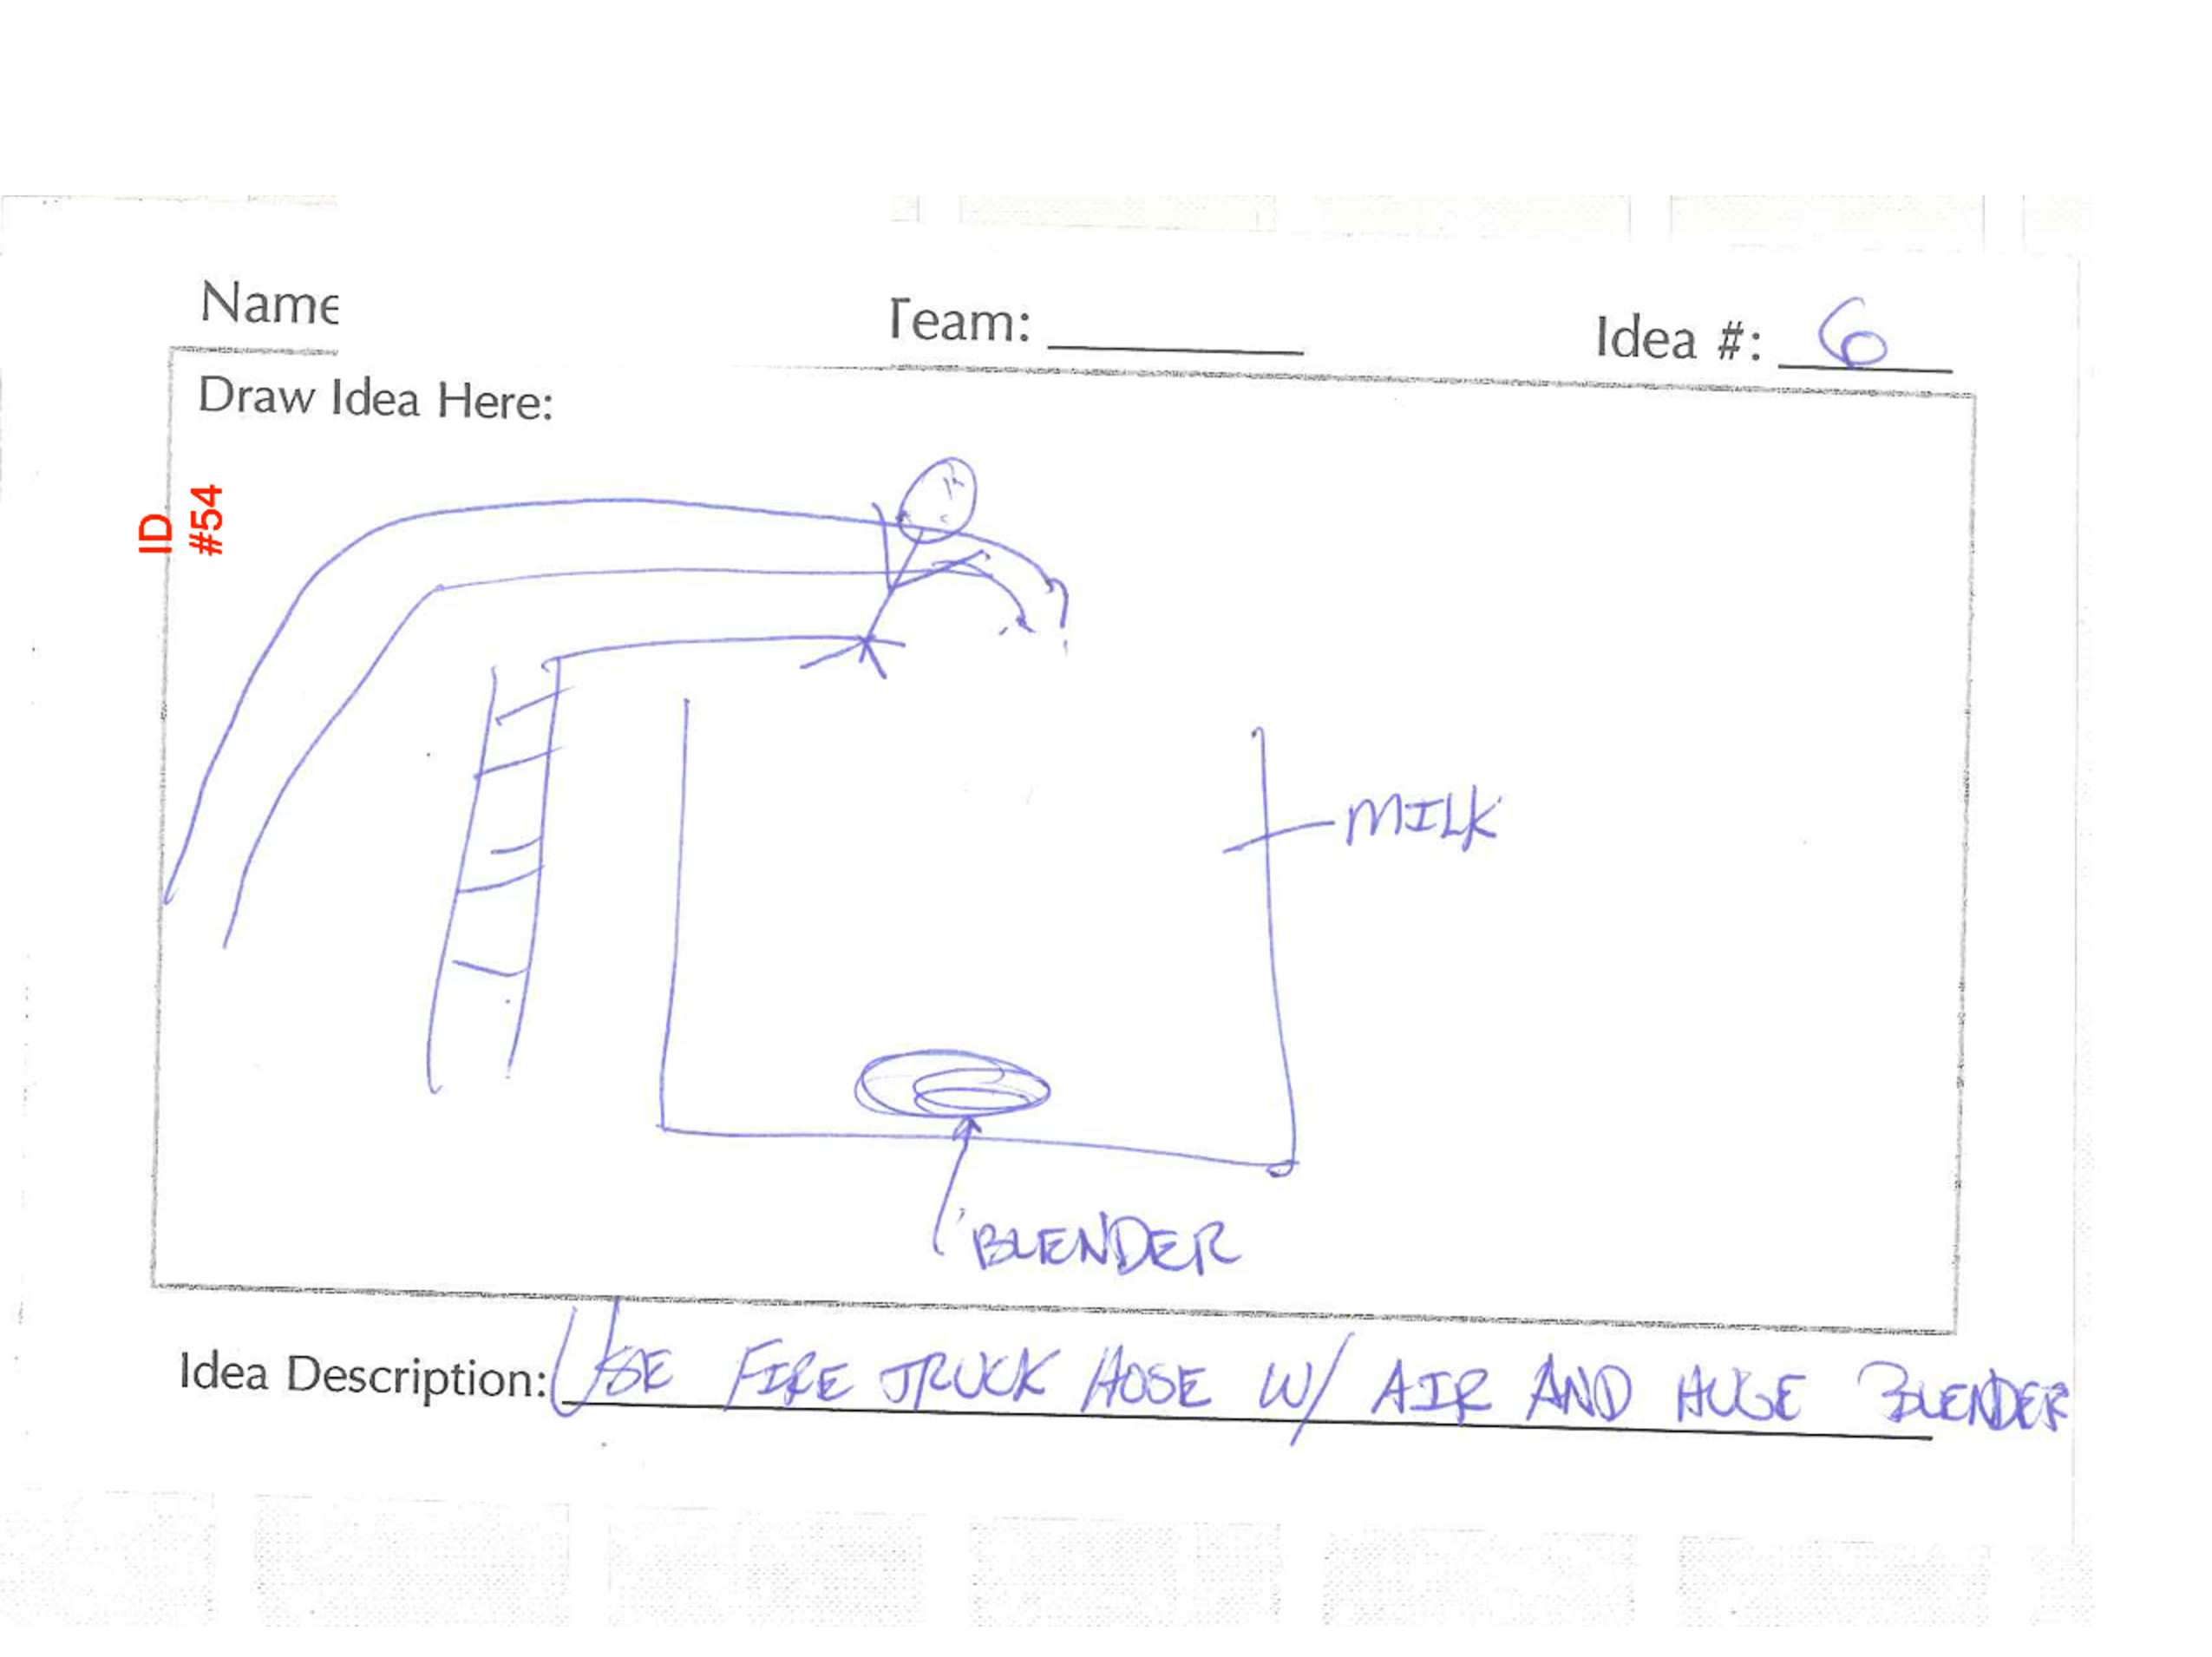 Name
Team:
Idea #: 6
Draw Idea Here:
ID
#54
MILK
BLENDER
Idea Description: USE FIRE TRUCK HOSE W/ AIR AND HUGE BLENDER